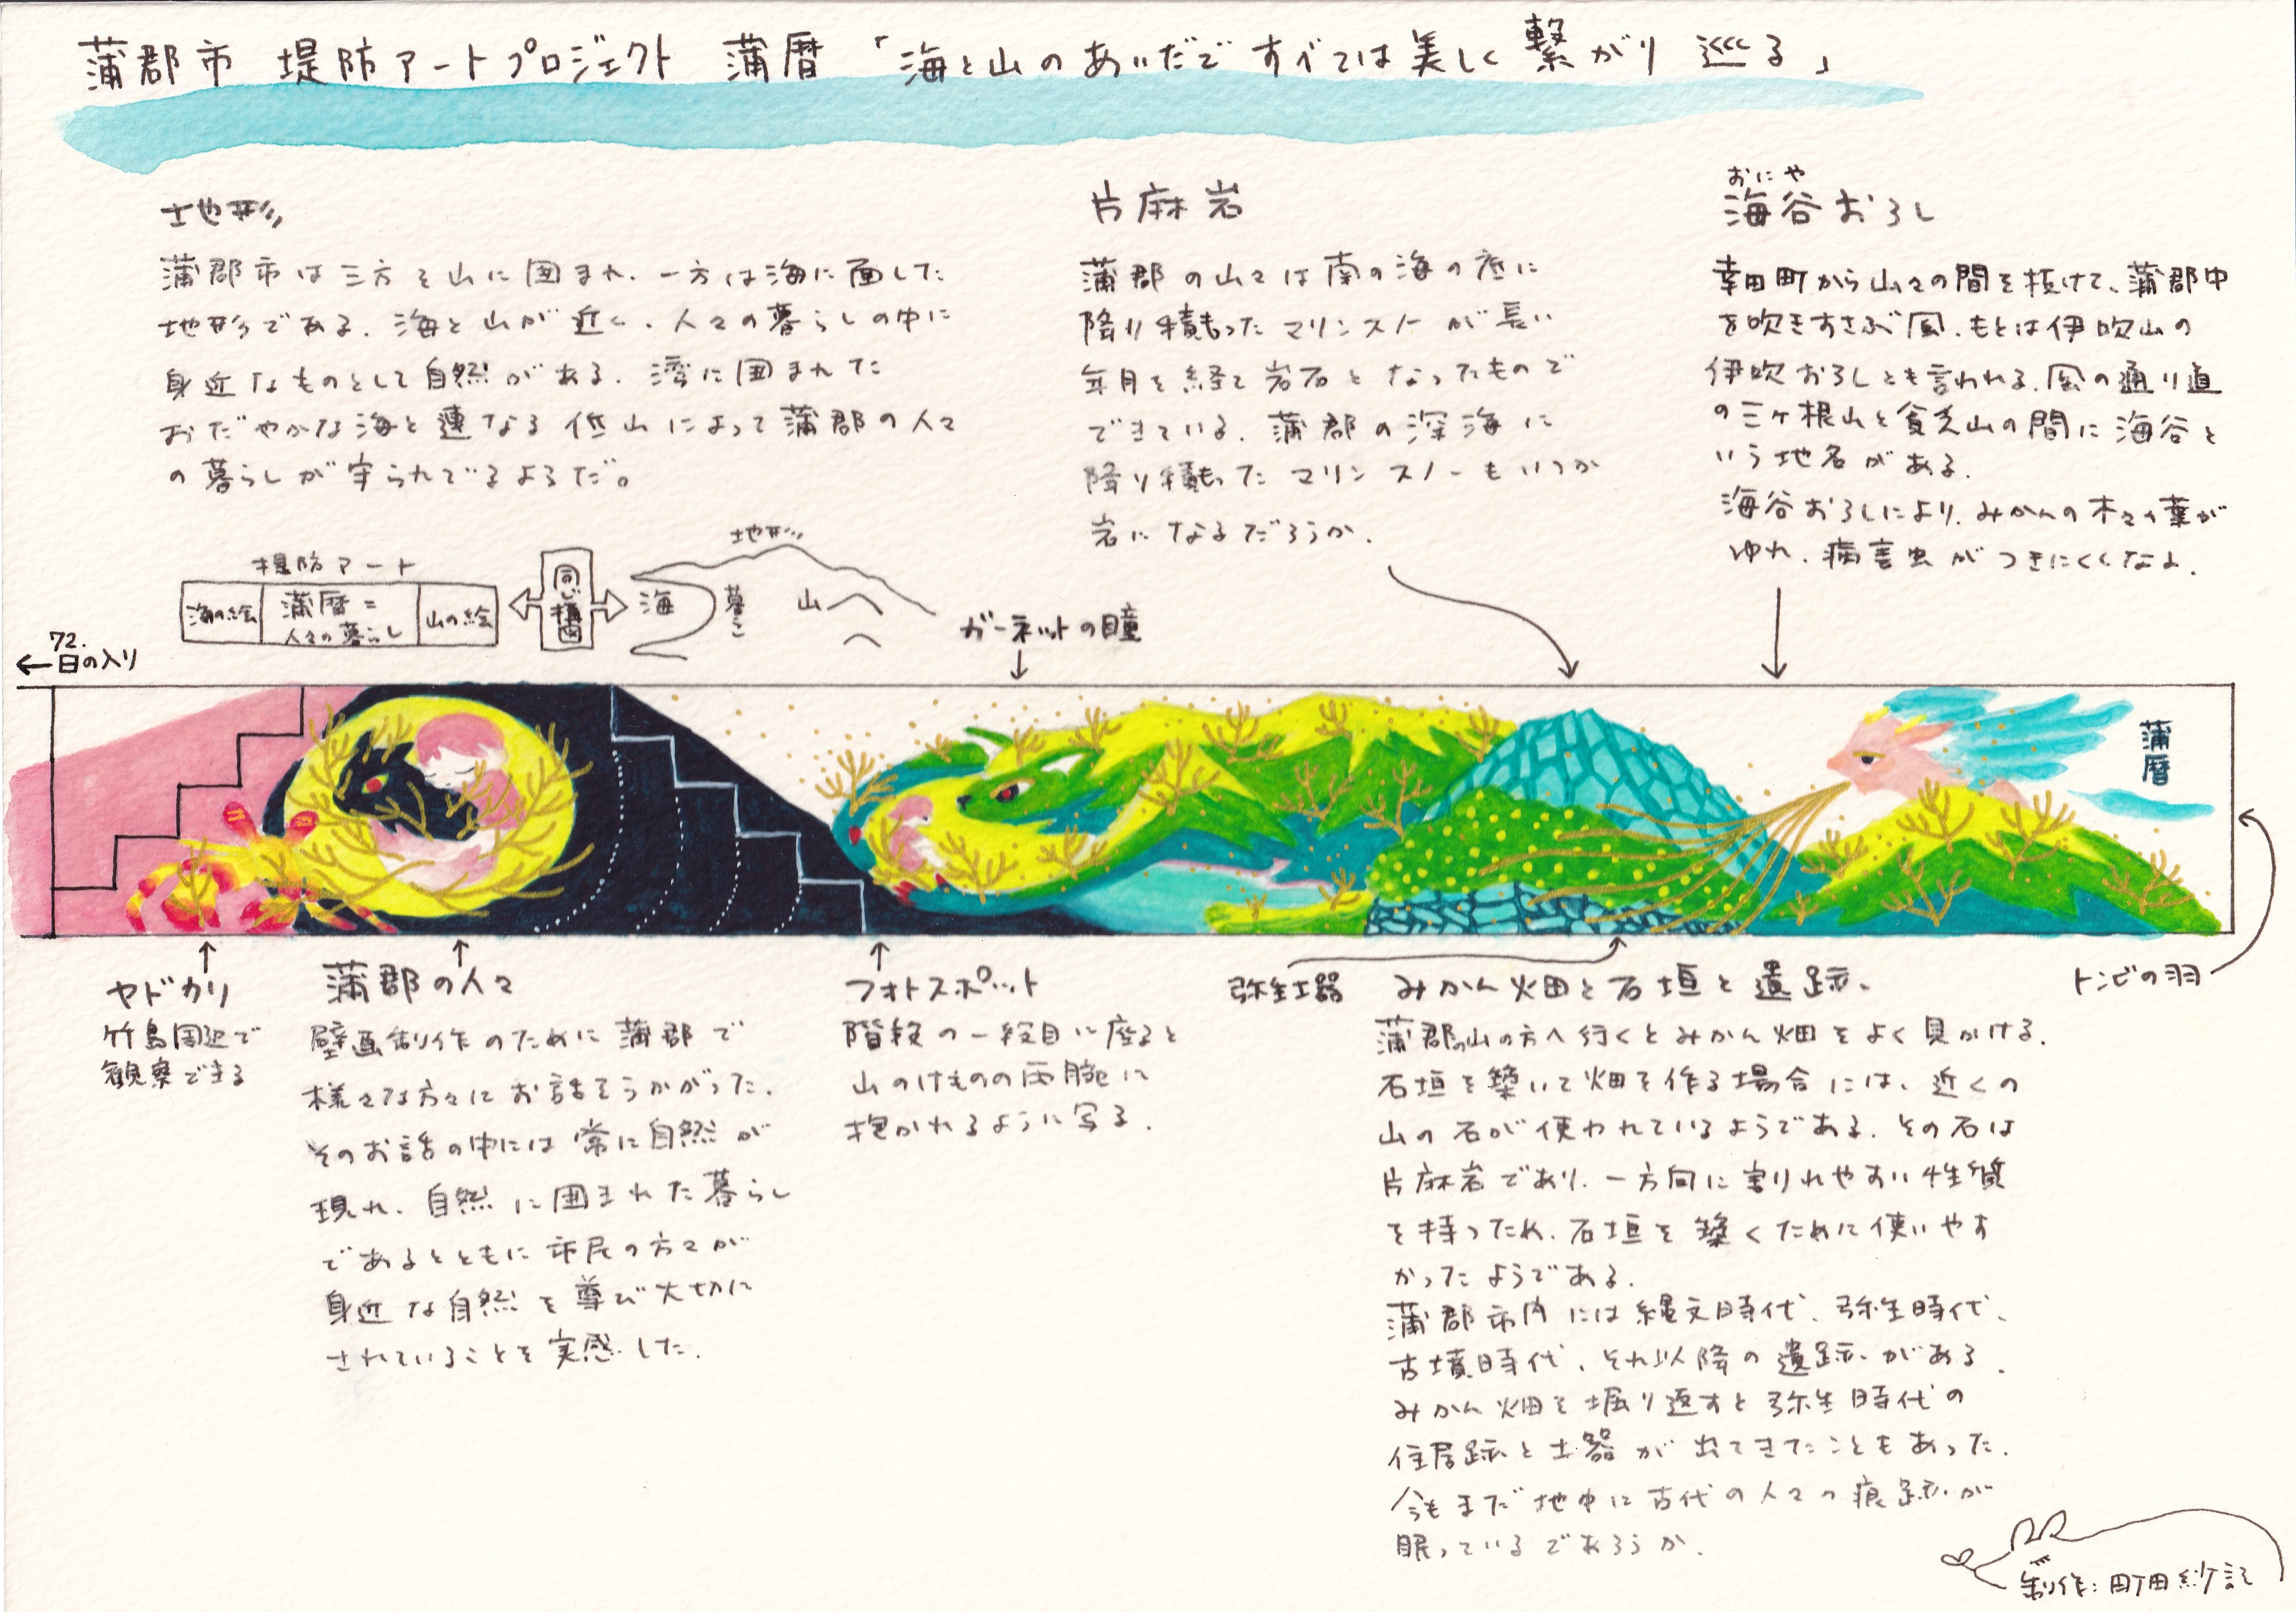 蒲郡市 堤防アートプロジェクト 蒲暦 「海と山のあいだですべては美しく繋がり 巡る」
地形
蒲郡市は三方を山に囲まれ、一方は海に面した
地形である。海と山が近く、人々の暮らしの中に
身近なものとして自然がある。湾に囲まれた
おだやかな海と連なる低山によって蒲郡の人々
の暮らしが守られてるようだ。
片麻岩
蒲郡の山々は南の海の底に
降り積もったマリンスノーが長い
年月を経て岩石となったもので
できている。蒲郡の深海に
降り積もったマリンスノーもいつか
岩になるだろうか。
おにや
海谷おろし
幸田町から山々の間を抜けて、蒲郡中
を吹きすさぶ風。もとは伊吹山の
伊吹おろしとも言われる。風の通り道
の三ヶ根山と貧乏山の間に海谷と
いう地名がある。
海谷おろしにより、みかんの木々の葉が
ゆれ、病害虫がつきにくくなる。
堤防アート
海の絵
蒲暦=
人々の暮らし
山の絵
同じ構図
地形
海
暮らし
山
ガーネットの瞳
72.
日の入り
蒲暦
ヤドカリ
竹島周辺で
観察できる
蒲郡の人々
壁画制作のために蒲郡で
様々な方々にお話をうかがった。
そのお話の中には常に自然が
現れ、自然に囲まれた暮らし
であるとともに市民の方々が
身近な自然を尊び大切に
されていることを実感した。
フォトスポット
階段の一段目に座ると
山のけものの両腕に
抱かれるように写る。
弥生土器
みかん畑と石垣と遺跡。
蒲郡の山の方へ行くとみかん畑をよく見かける。
石垣を築いて畑を作る場合には、近くの
山の石が使われているようである。その石は
片麻岩であり、一方向に割れやすい性質
を持つため、石垣を築くために使いやす
かったようである。
蒲郡市内には縄文時代、弥生時代、
古墳時代、それ以降の遺跡がある。
みかん畑を掘り返すと弥生時代の
住居跡と土器が出てきたこともあった。
今もまだ地中に古代の人々の痕跡が
眠っているであろうか。
トンビの羽
制作:町田紗記